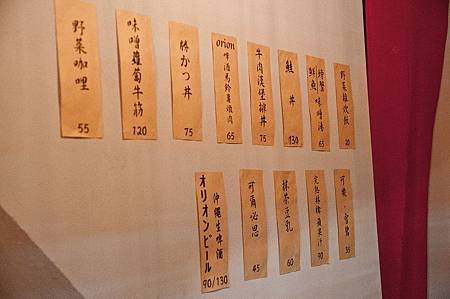 野菜咖哩
55
味噌蘿蔔牛筋
120
豚かつ丼
75
orion
啤酒馬鈴薯燉肉
65
牛肉漢堡排丼
75
鮭丼
130
螃蟹
鮮魚
味噌湯
65
野菜雜炊飯
20
沖繩生啤酒
オリオンビール
90/130
可爾必思
45
抹茶豆乳
60
完熟林檎蘋果汁
90
可樂·雪碧
35